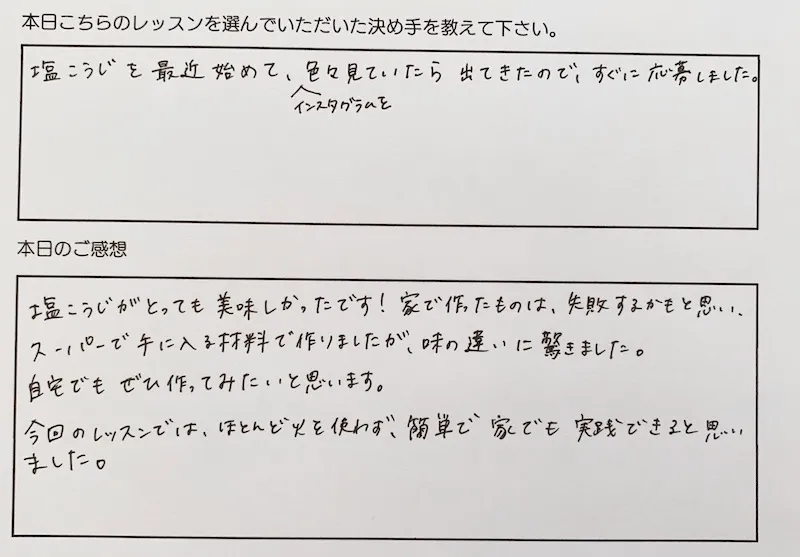 本日こちらのレッスンを選んでいただいた決め手を教えて下さい。
塩こうじを最近始めて、色々見ていたら出てきたので、すぐに応募しました。
インスタグラムを
本日のご感想
塩こうじがとっても美味しかったです！家で作ったものは、失敗するかもと思い、
スーパーで手に入る材料で作りましたが、味の違いに驚きました。
自宅でもぜひ作ってみたいと思います。
今回のレッスンでは、ほとんど火を使わず、簡単で家でも実践できると思い
ました。